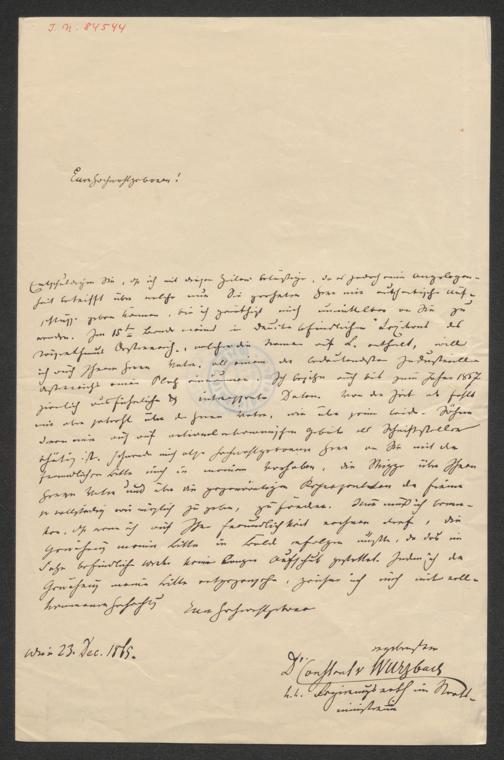 I. N. 84544
Euer Hochwohlgeboren!
Entschuldigen Sie, daß ich mit diesen Zeilen belästige, da es jedoch eine Angelegen-
heit betrifft über welche nur Sie geehrter Herr mir authentische Auf-
geben können, bin ich genöthigt mich unmittelbar an Sie zu
wenden. Im 15ten Bande meines in Drucke befindlichen Lexikons des
Kaiserthums Oesterreich, welcher die Namen auf L. enthält, will
ich auch Ihrem Herrn Vater, als einem der bedeutendsten Industriellen
Oesterreichs einen Platz einräumen. Ich besitze auch bis zum Jahre 1857
ziemlich ausführliche Daten. Von da jedoch fehlt
mir aber sowohl über den Herrn Vater, wie über seine beiden Söhne
deren einer auch auf nationalökonomischem Gebiete als Schriftsteller
thätig ist. mich also hochverehrter Herr an Sie mit der
freundlichen Bitte mich in meinem Vorhaben, die Skizze über Ihren
Herrn Vater und über die gegenwärtigen Repräsentanten der Firma
so vollständig wie möglich zu geben, zu fördern. Nur muß ich bemer-
ken, daß wenn ich auf Ihre Freundlichkeit rechnen darf, die
Gewährung meiner Bitte in Bälde erfolgen müßte, da das im
Satze befindliche Werk keinen langen Aufschub gestattet. Indem ich der
Gewährung meiner Bitte entgegensehe, zeichne ich mich mit voll-
kommener Hochachtung Euer Hochwohlgeboren
Wien 23. Dec. 1865.
ergebenster
Dr Constant v Wurzbach
k.k. Regierungsrath im Staats-
ministerium